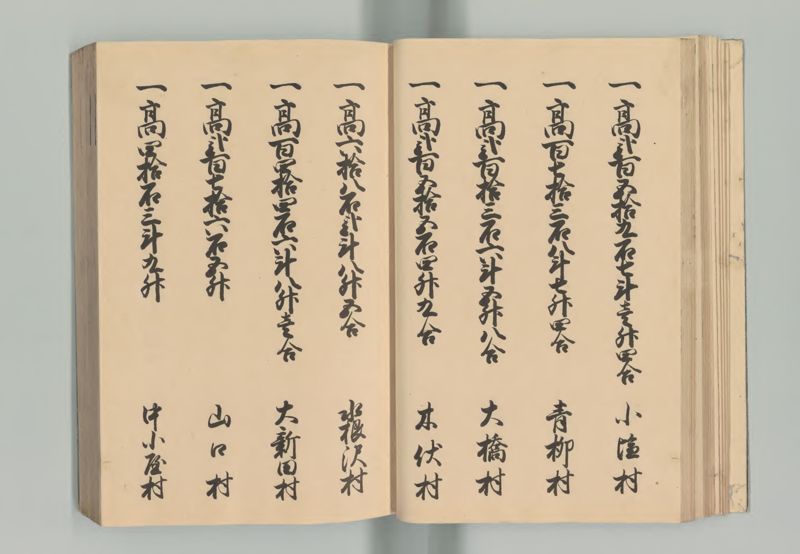 一高弐百五拾九石七斗壱升四合 小塩村
一高百七拾三石八斗七升四合 青柳村
一高弐百拾三石六斗五升八合 大橋村
一高弐百五拾六石四升九合 木伏村
一高六拾八石弐斗八升五合 水根沢村
一高百四拾四石六斗八升壱合 大新田村
一高弐百七拾六石五升 山口村
一高四拾石三斗九升 中小屋村